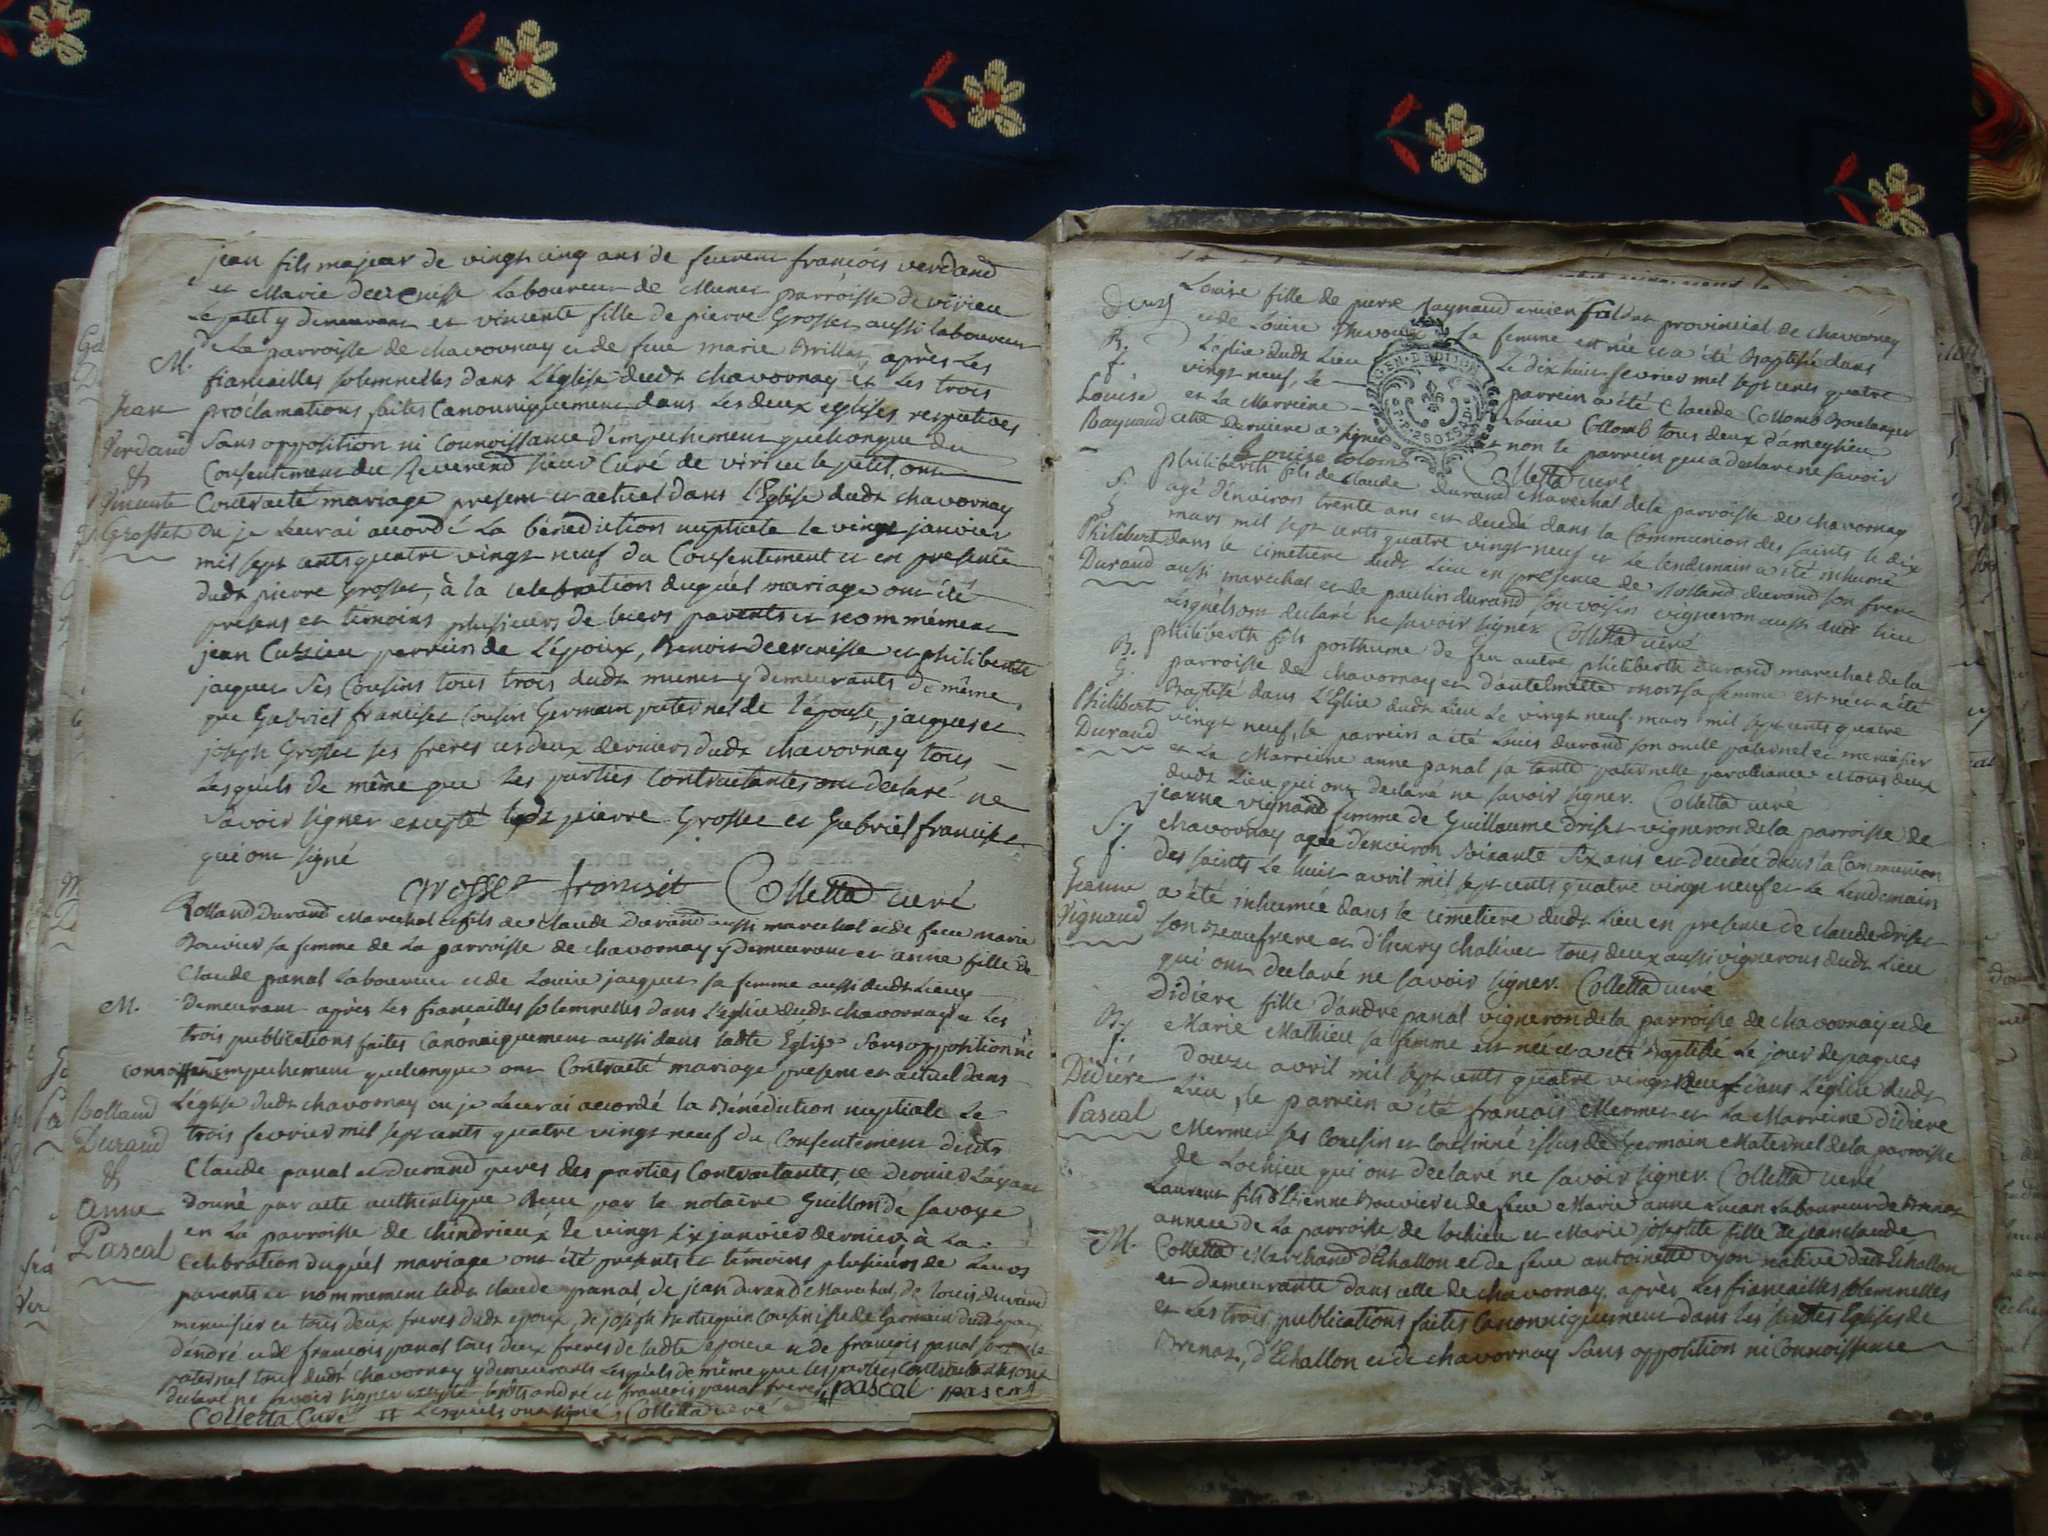 jean fils majeur de vingt cinq ans de feurent françois verdand
et Marie deecrenisse Laboureur de Munet parroisse de virieu
Le petit y demeurant et vincente fille de pierre Grosset aussi laboureur
de La parroisse de chavornay et de feue marie Brillat, après Les
M.
fiancailles solemnelles dans L'église dudt chavornay et Les trois
Jean
proclamations faites Canonniquement dans Les deux églises respectives
Verdand
sans opposition ni Connoissance d'empechement quelconque du
&
Consentement du Reverend sieur Curé de virieu le petit, ont
Vincente
Contracté mariage present et actuel dans l'Eglise dudt chavornay
Grosset
ou je Leurai accordé La bénédiction nuptiale le vingt janvier
mil sept cents quatre vingt neuf du Consentement et en presence
dudt pierre Grosset, à la celebration duquél mariage ont été
présens et temoins plusieurs de leurs parents et nommément
jean Cuzieu parrein de L'époux, Benoit deecrenisse et philiberte
jacquet ses Cousins tous trois dudt munet y demeurants de même
que Gabriel franciset cousin Germain paternel de l'épouse, jacques et
joseph Grosset ses frères ces deux derniers dudt chavornay tous
Lesquéls de même que Les parties Contractantes ont declaré ne
savoir signer excepté ledt pierre Grosset et Gabriel franciset
qui ont signé
Grosset francisit Colletta curé
Rolland Durand Marechal fils de Claude Durand aussi marechal et de feue marie
Bouvier sa femme de La parroisse de chavornay y demeurant et anne fille de
Claude panal Laboureur et de Louise jacquet sa femme aussi dudt Lieu y
M.
demeurant après les fiancailles solemnelles dans L'église dudt chavornay et Les
trois publications faites Canonniquement aussi dans ladte Église sans opposition ni
connoissen empechement quelconque ont Contracté mariage present et actuel dans
Rolland
L'église dudt chavornay ou je Leurai accordé la Bénédiction nuptiale Le
Durand
trois fevrier mil sept cents quatre vingt neuf du Consentement desdts
&
Claude panal et Durand peres des parties Contractantes, ce dernier L'ayant
Anne
donné par acte authentique Recu par le notaire Guillon de savoye
Pascal
en La parroisse de chindrieux le vingt six janvier dernier à La
Celebration duquél mariage ont été présents et témoins plusieurs de Leurs
parents et nommement ledt claude panal de jean durand Marechal, de Louis durand
menuisier et tous deux freres dudt epoux, de joseph Cousin issu de Germain dudt epoux
d'andré et de francois panal tous deux freres de ladte epouse et de francois panal
paternel tous dudt chavornay y demeurants Lesquéls de même que les parties Contractantes ont
declaré ne savoir signer excepté lesdts andré et francois panal freres pascal pascal
Colletta Curé Lesquéls ont signé, Colletta curé
Louise fille de pierre Raynaud ancien soldat provincial de chavornay
B.
et de Louise Thevoux La femme est née et a été Baptisée dans
f.
L'eglise dudt Lieu Le dix huit fevrier mil sept cents quatre
Louise
vingt neuf, Le parrein a été Claude Collomb Boulanger
Raynaud
et La Marreine Louise Collomb tous deux d'ameyzieu
cette derniere a signé et non le parrein qui a declaré ne savoir
Louise Colomb Colletta curé
GEN. DE DIJON
S.
philiberth fils de Claude Durand Marechal de la parroisse de chavornay
G
agé d'environ trente ans est decedé dans la Communion des saints le dix
Philibert
mars mil sept cents quatre vingt neuf et le lendemain a été inhumé
Durand
dans le cimetiere dudt Lieu en présence de Rolland durand son frere
aussi marechal et de paulin durand son voisin vigneron aussi dudt lieu
Lesquéls ont declaré ne savoir signer Colletta curé
B.
philiberth fils posthume de feu autre philiberth Durand marechal de la
G.
parroisse de chavornay et d'antelmette morsa femme est né et a été
Philibert
Baptisé dans L'Eglise dudt Lieu Le vingt neuf mars mil sept cents quatre
Durand
vingt neuf, le parrein a été Louis durand son oncle paternel et menuisier
et La Marreine anne panal sa tante paternelle par alliance et tous deux
dudt Lieu qui ont declaré ne savoir signer. Colletta curé
S.
jeanne vignand femme de Guillaume driset vigneron de la parroisse de
f.
chavornay agée d'environ soixante six ans est decedée dans la Communion
Jeanne
des saints Le huit avril mil sept cents quatre vingt neuf et Le Lendemain
Vignand
a été inhumée dans le cimetiere dudt Lieu en presence de claude driset
son Beaufrere et d'henry chalivet tous deux aussi vignerons dudt Lieu
qui ont declaré ne savoir signer. Colletta curé
B.
Didiere fille d'andré panal vigneron de la parroisse de chavornay et de
f.
Marie Mathieu sa femme est née et a été Baptisée Le jour de paques
Didiére
douze avril mil sept cents quatre vingt neuf dans L'eglise dudt
Pascal
Lieu, le parrein a été francois Mermet et La Marreine Didiere
Mermet ses Cousin et Cousine issus de Germain Maternel de la parroisse
de Lochieu qui ont declaré ne savoir signer. Colletta curé
Laurent fils d'Etienne Bouvier et de feue Marie anne Lucan Laboureur de Brenaz
M.
annexe de La parroisse de Lochieu et Marie josephte fille de jean claude
Colletta Marchand d'Echallon et de feue antoinette vyon native dudt Echallon
et demeurante dans celle de chavornay, après Les fiancailles solemnelles
et Les trois publications faites Canonniquement dans les susdtes Eglises de
Brenaz, d'Echallon et de chavornay sans opposition ni Connoissance